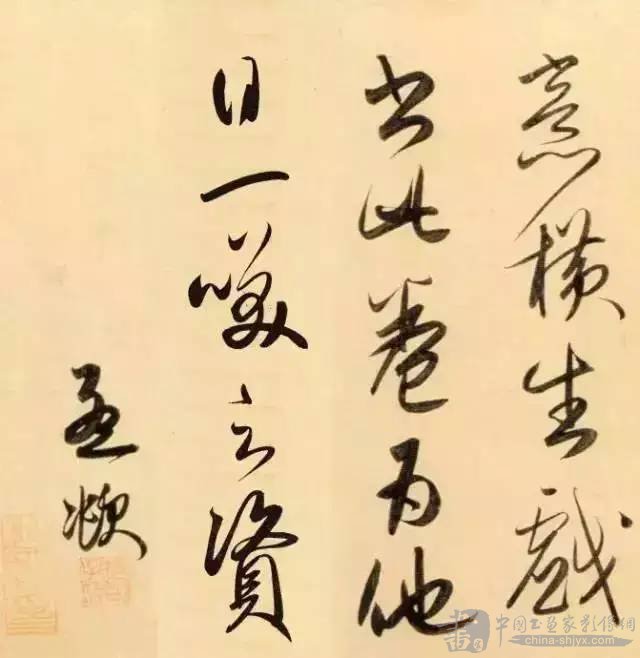 意橫生戲
書此卷為他
日一咲之資
孟頫
中国书画家影像網
china-shjyx.com